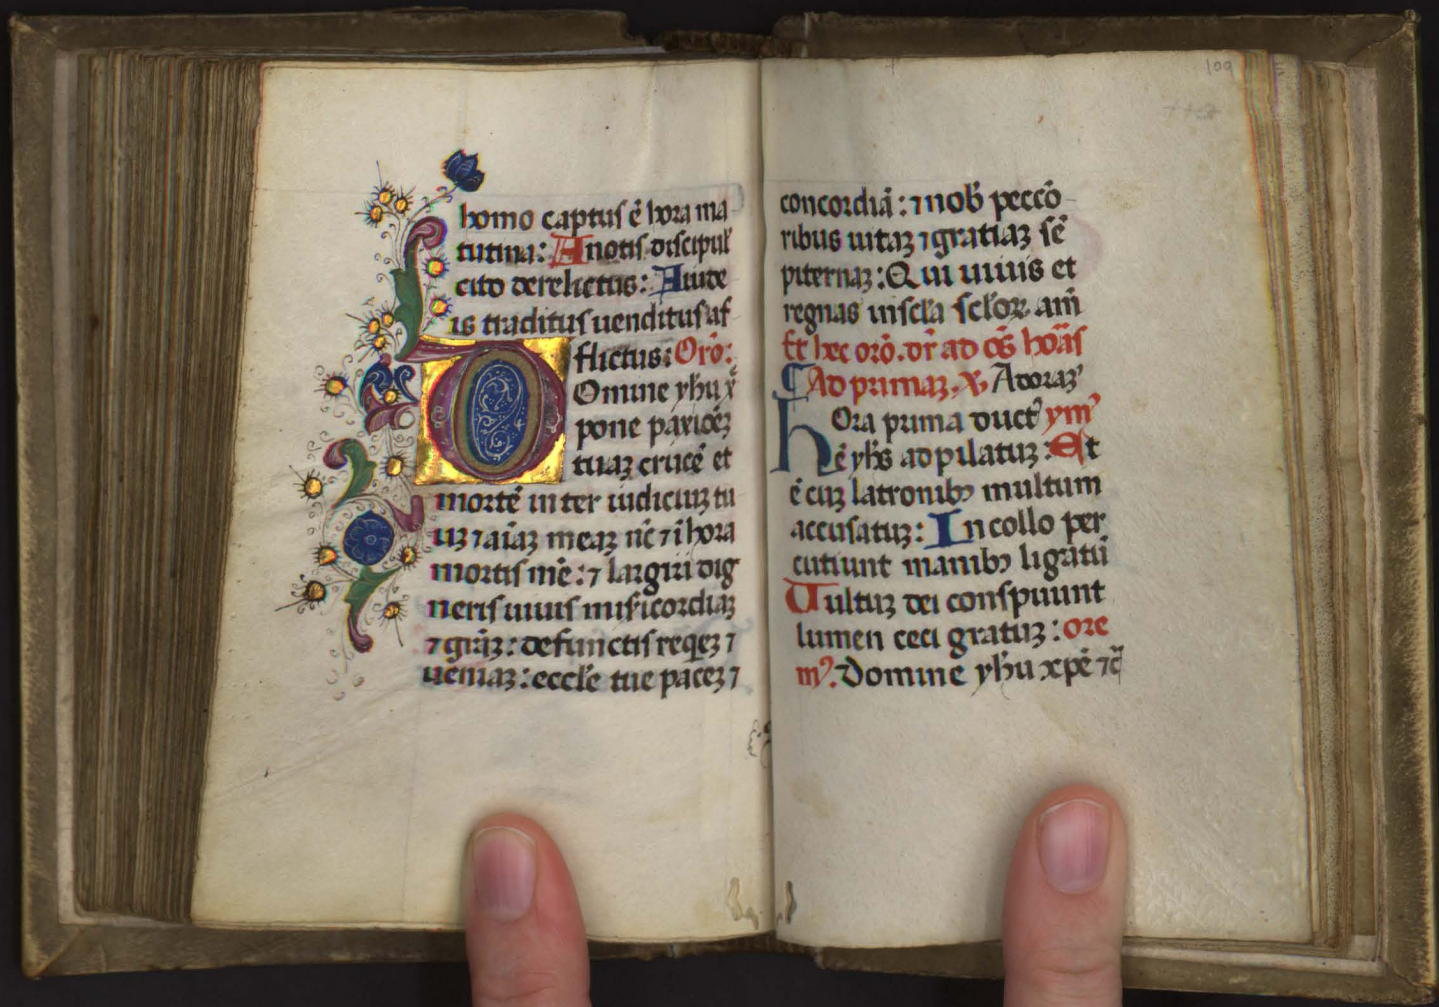 homo captus ē hora ma
tutina: A notis discipul'
cito derelictus: A iude
is traditus uenditus af
flictus: Orō:
Domine yhu x̄
pone paxioēȝ
tuaȝ crucē et
mortē inter iudiciuȝ tu
uȝ ⁊ aīaȝ meaȝ nc̄ ⁊ ī hora
mortis mē: ⁊ largiri dig
neris uiuis misicordiaȝ
⁊ grāȝ: defunctis reqeȝ ⁊
ueniaȝ: eccłe tue paceȝ ⁊
109
concordiā: ⁊ nob' peccō
ribus uitaȝ ⁊ gratiaȝ sē
piternaȝ: Qui uiuis et
regnas in scła scłoꝝ am̄
Et hec orō. dr̄ ad oē̄s hoās
Ad primaȝ. ꝟ. Adoraȝ'
Hora prima duct' ym'
ē yhs̄ ad pilatuȝ: Et
ē cuȝ latronibꝫ multum
accusatuȝ: In collo per
cutiunt manibꝫ ligatū
Uultuȝ dei conspuunt
lumen celi gratuȝ: ore
m'. Domine yhu xpē ⁊c̄